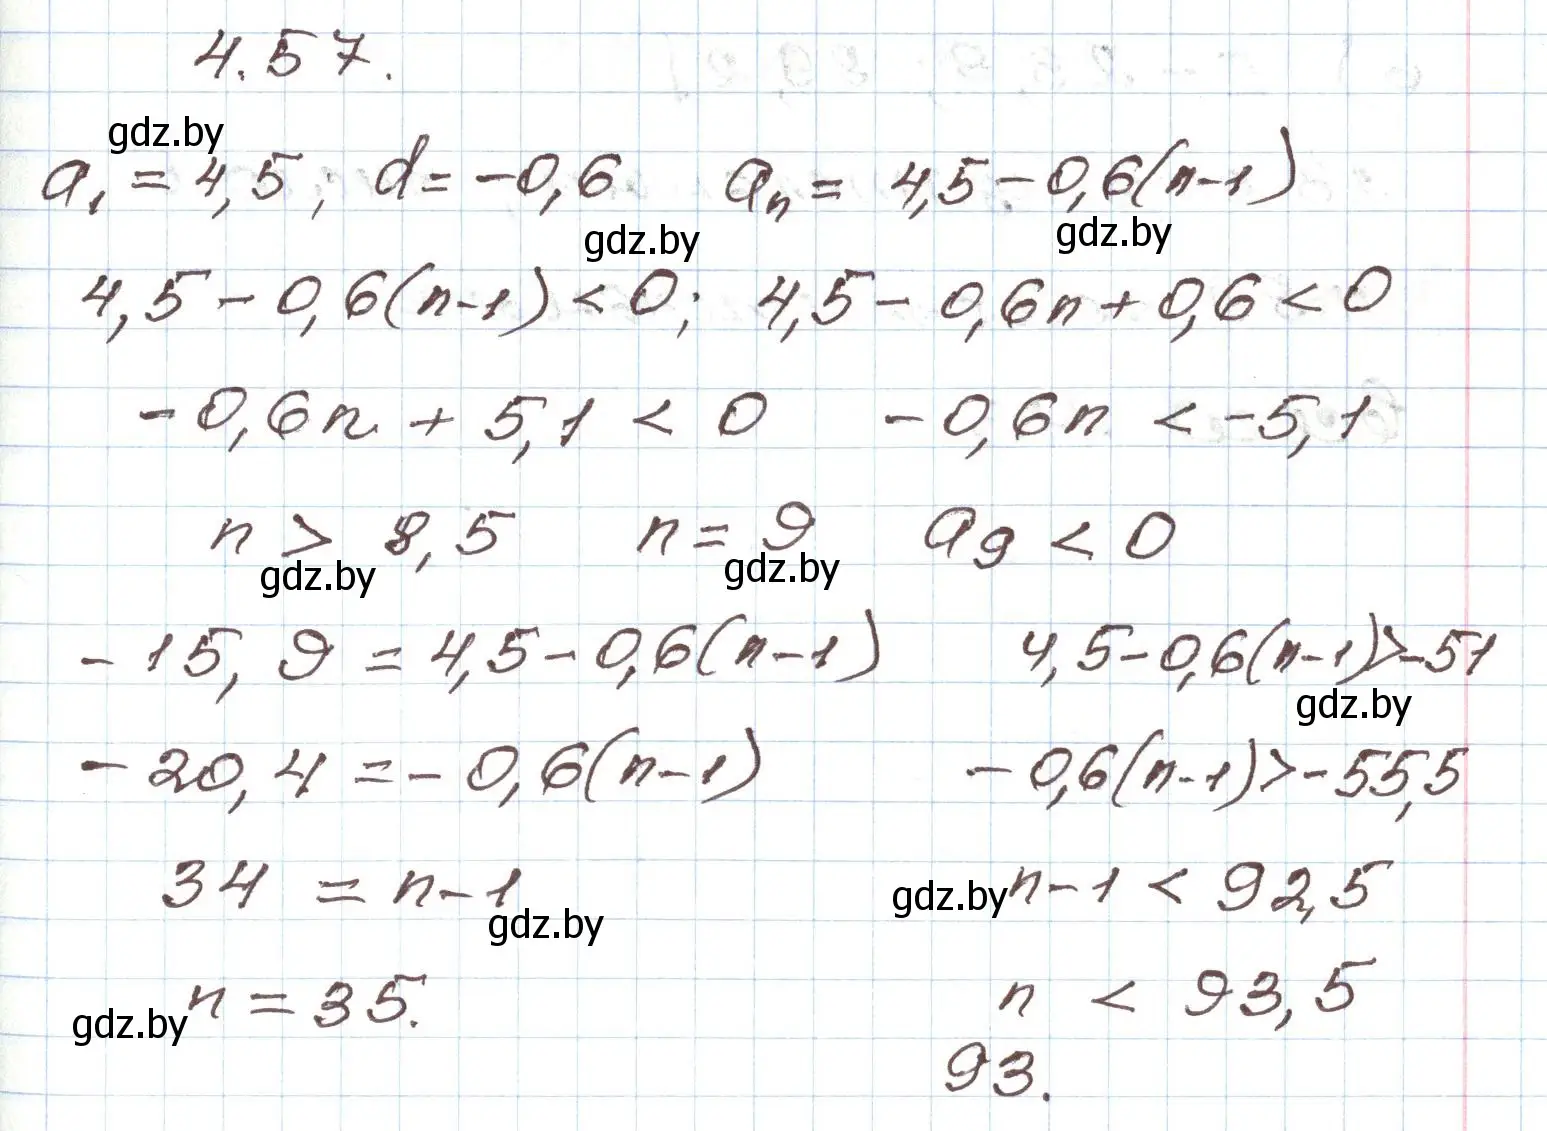 4.57.
gdz.by
a₁ = 4,5; d = -0,6 aₙ = 4,5 - 0,6(n-1)
gdz.by gdz.by
4,5 - 0,6(n-1) < 0; 4,5 - 0,6n + 0,6 < 0
-0,6n + 5,1 < 0 -0,6n < -5,1
n > 8,5 n = 9 a₉ < 0
gdz.by gdz.by
-15,9 = 4,5 - 0,6(n-1) 4,5 - 0,6(n-1) > -51
gdz.by
-20,4 = -0,6(n-1) -0,6(n-1) > -55,5
34 = n-1 gdz.by n-1 < 92,5
gdz.by
gdz.by n = 35. n < 93,5
93.